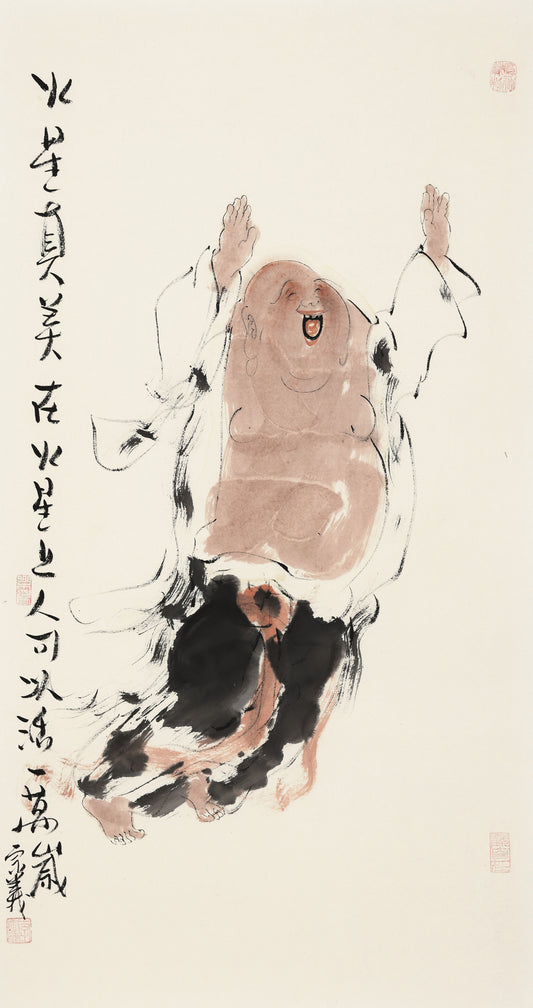 火星真美在火星上人可以活一萬歲
宗義